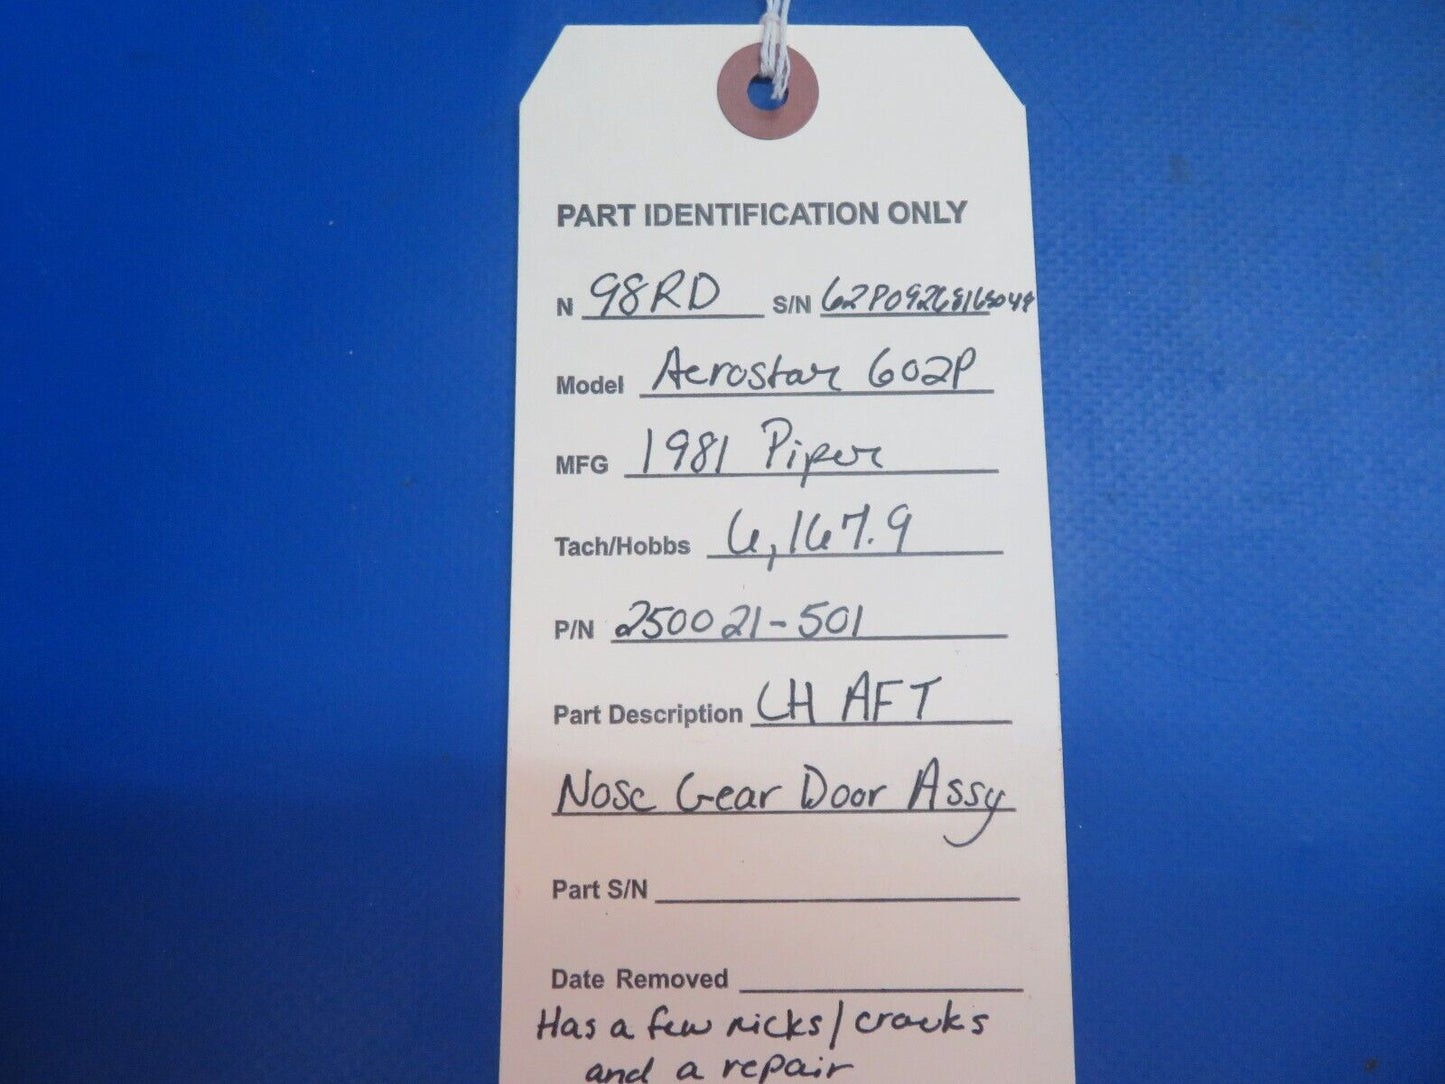 PART IDENTIFICATION ONLY
N 98RD S/N 62P09268165049
Model Aerostar 602P
MFG 1981 Piper
Tach/Hobbs 6,167.9
P/N 250021-501
Part Description LH AFT
Nose Gear Door Assy
Part S/N
Date Removed
Has a few nicks/cracks
and a repair